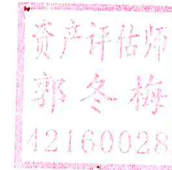 资产评估师
郭冬梅
42160028